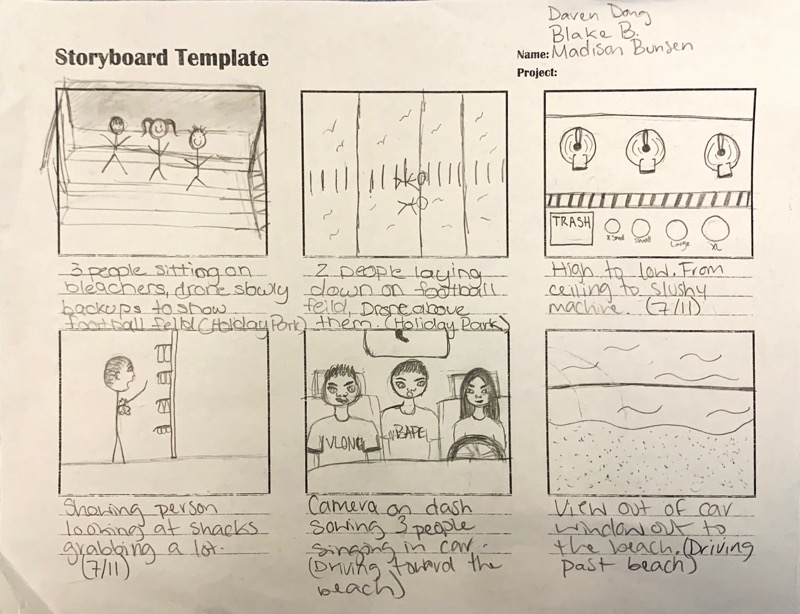 Daven Dong
Blake B.
Storyboard Template
Name: Madison Bunsen
Project:
TRASH
X Small
Small
Large
XL
3 people sitting on
bleachers, drone slowly
backups to show
football feild (Holiday Park)
2 people laying
down on football
feild, Drone above
them. (Holiday Park)
High to low. From
ceiling to slushy
machine. (7/11)
VLONE
BAPE
Showing person
looking at snacks
grabbing a lot.
(7/11)
Camera on dash
sowing 3 people
singing in car.
(Driving toward the
beach)
View out of car
window out to
the beach. (Driving
past beach)